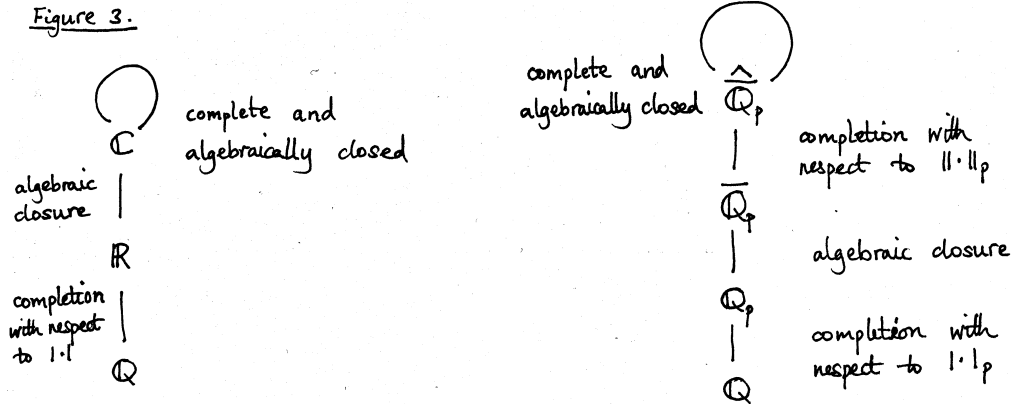 Figure 3.
complete and
algebraically closed
ℂ
algebraic
closure
ℝ
completion
with respect
to |·|
ℚ
complete and
algebraically closed
$\hat{\overline{ℚ}}_p$
completion with
respect to ||·||ₚ
$\overline{ℚ}_p$
algebraic closure
ℚₚ
completion with
respect to |·|ₚ
ℚ